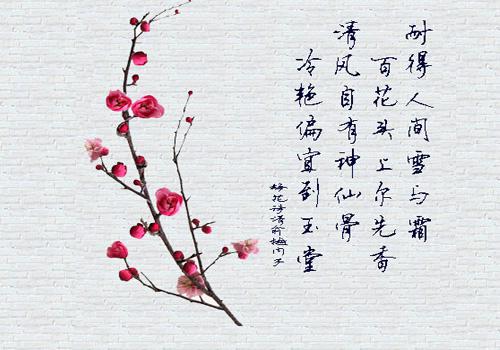 耐得人间雪与霜
百花头上尔先香
清风自有神仙骨
冷艳偏宜到玉堂
梅花诗清俞